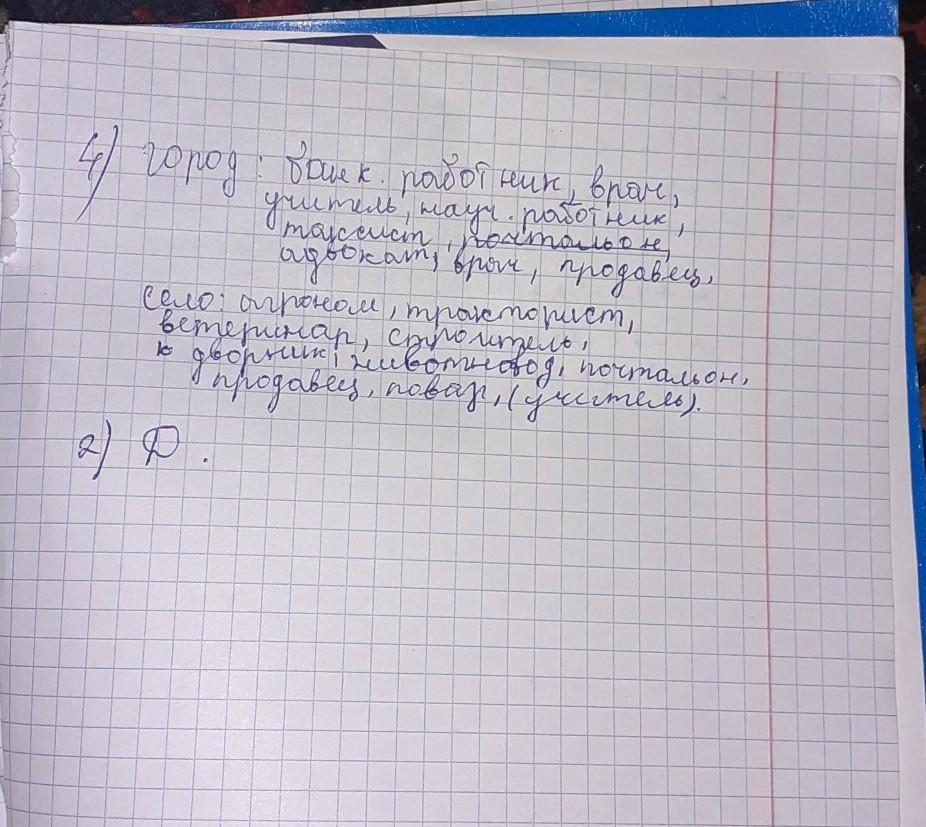 4) город: банк. работник, врач,
учитель, науч. работник,
таксист, почтальон,
адвокат, врач, продавец,
село: агроном, тракторист,
ветеринар, строитель,
дворник, животновод, почтальон,
продавец, повар, (учитель).
2) Д.